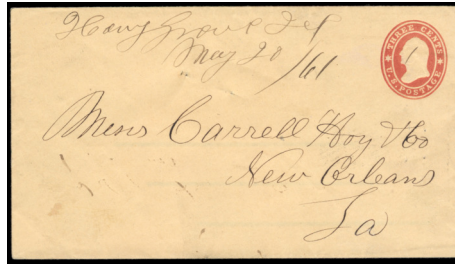 Grove
May 20/61
THREE CENTS
U.S. POSTAGE
Messrs Carrell Hoy & Co
New Orleans
La